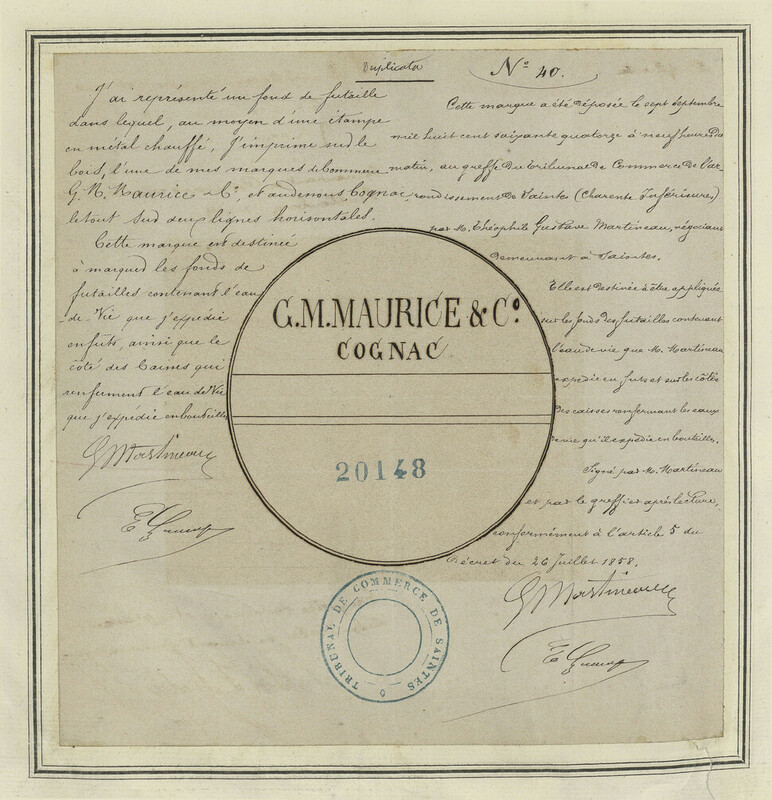 Duplicata
N° 40.
J'ai représenté un fond de futaille
dans lequel, au moyen d'une étampe
en métal chauffé, j'imprime sur le
bois, l'une de mes marques de Commerce
G. M. Maurice & Co, et au dessous, Cognac
le tout sur deux lignes horisontales.
Cette marque est destinée
à marquer les fonds de
futailles contenant l'eau
de-Vie que j'expédie
en futs, ainsi que le
côté des Caisses qui
renferment l'eau de Vie
que j'expédie en bouteilles
G Martineau
G.M.MAURICE & Co.
COGNAC
20148
TRIBUNAL DE COMMERCE DE SAINTES
Cette marque a été déposée le sept Septembre
mil huit cent soixante quatorze à neuf heures du
matin, au greffe du tribunal de Commerce de l'ar-
rondissement de Saintes (Charente Inférieure)
par M. Théophile Gustave Martineau, négociant
demeurant à Saintes.
Elle est destinée à être appliquée
sur les fonds des futailles contenant
l'eau de vie que M. Martineau
expédie en futs et sur les côtés
des caisses renfermant les eaux
de vie qu'il expédie en bouteilles.
Signé par M. Martineau
et par le greffier après lecture,
conformément à l'article 5 du
Décret du 26 Juillet 1858.
G Martineau